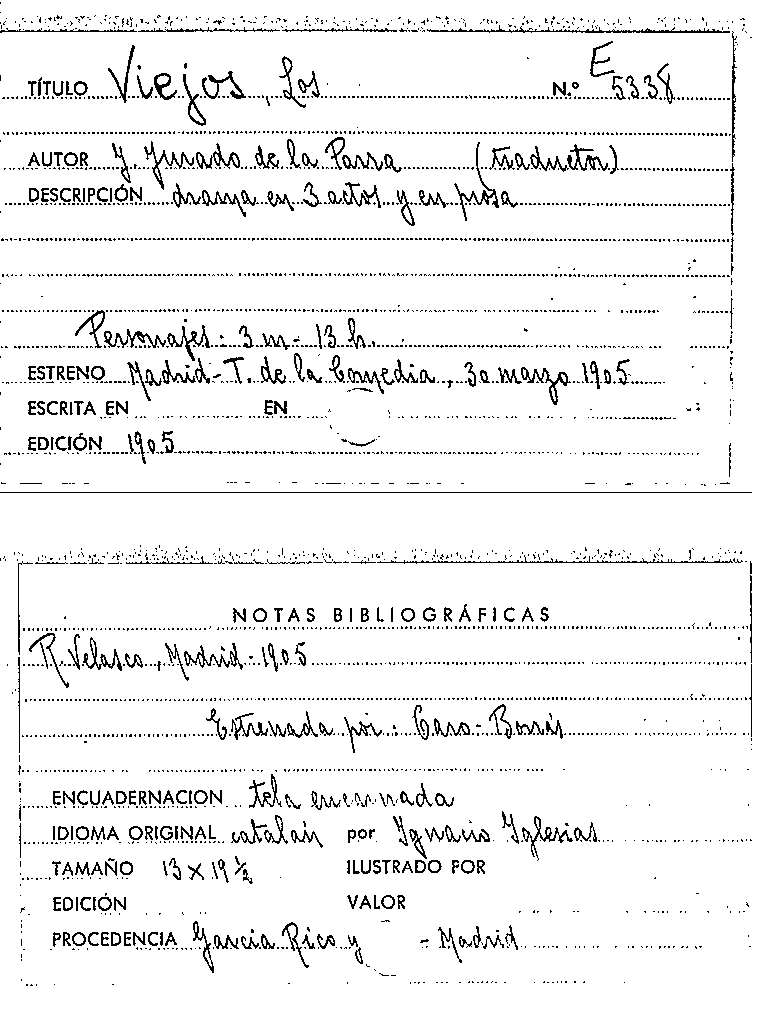 TÍTULO Viejos, Los N.º E 5338
AUTOR J. Jurado de la Parra (traductor)
DESCRIPCIÓN drama en 3 actos y en prosa
Personajes: 3 m - 13 h.
ESTRENO Madrid - T. de la Comedia, 30 marzo 1905
ESCRITA EN EN
EDICIÓN 1905
NOTAS BIBLIOGRÁFICAS
R. Velasco, Madrid - 1905
Estrenada por: Caro - Borrás
ENCUADERNACION tela encarnada
IDIOMA ORIGINAL catalán por Ignacio Iglesias
TAMAÑO 13 x 19 ½ ILUSTRADO POR
EDICIÓN VALOR
PROCEDENCIA García Rico y - Madrid